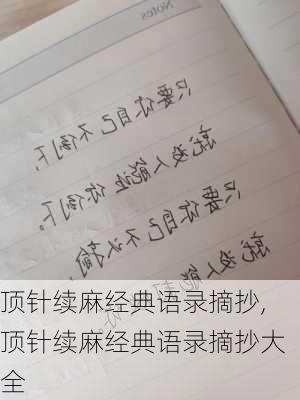 Notes
只要你自己不倒下。
就没人能逼你倒下。
只要你自己不认输
就没人能
顶针续麻经典语录摘抄,
顶针续麻经典语录摘抄大
全